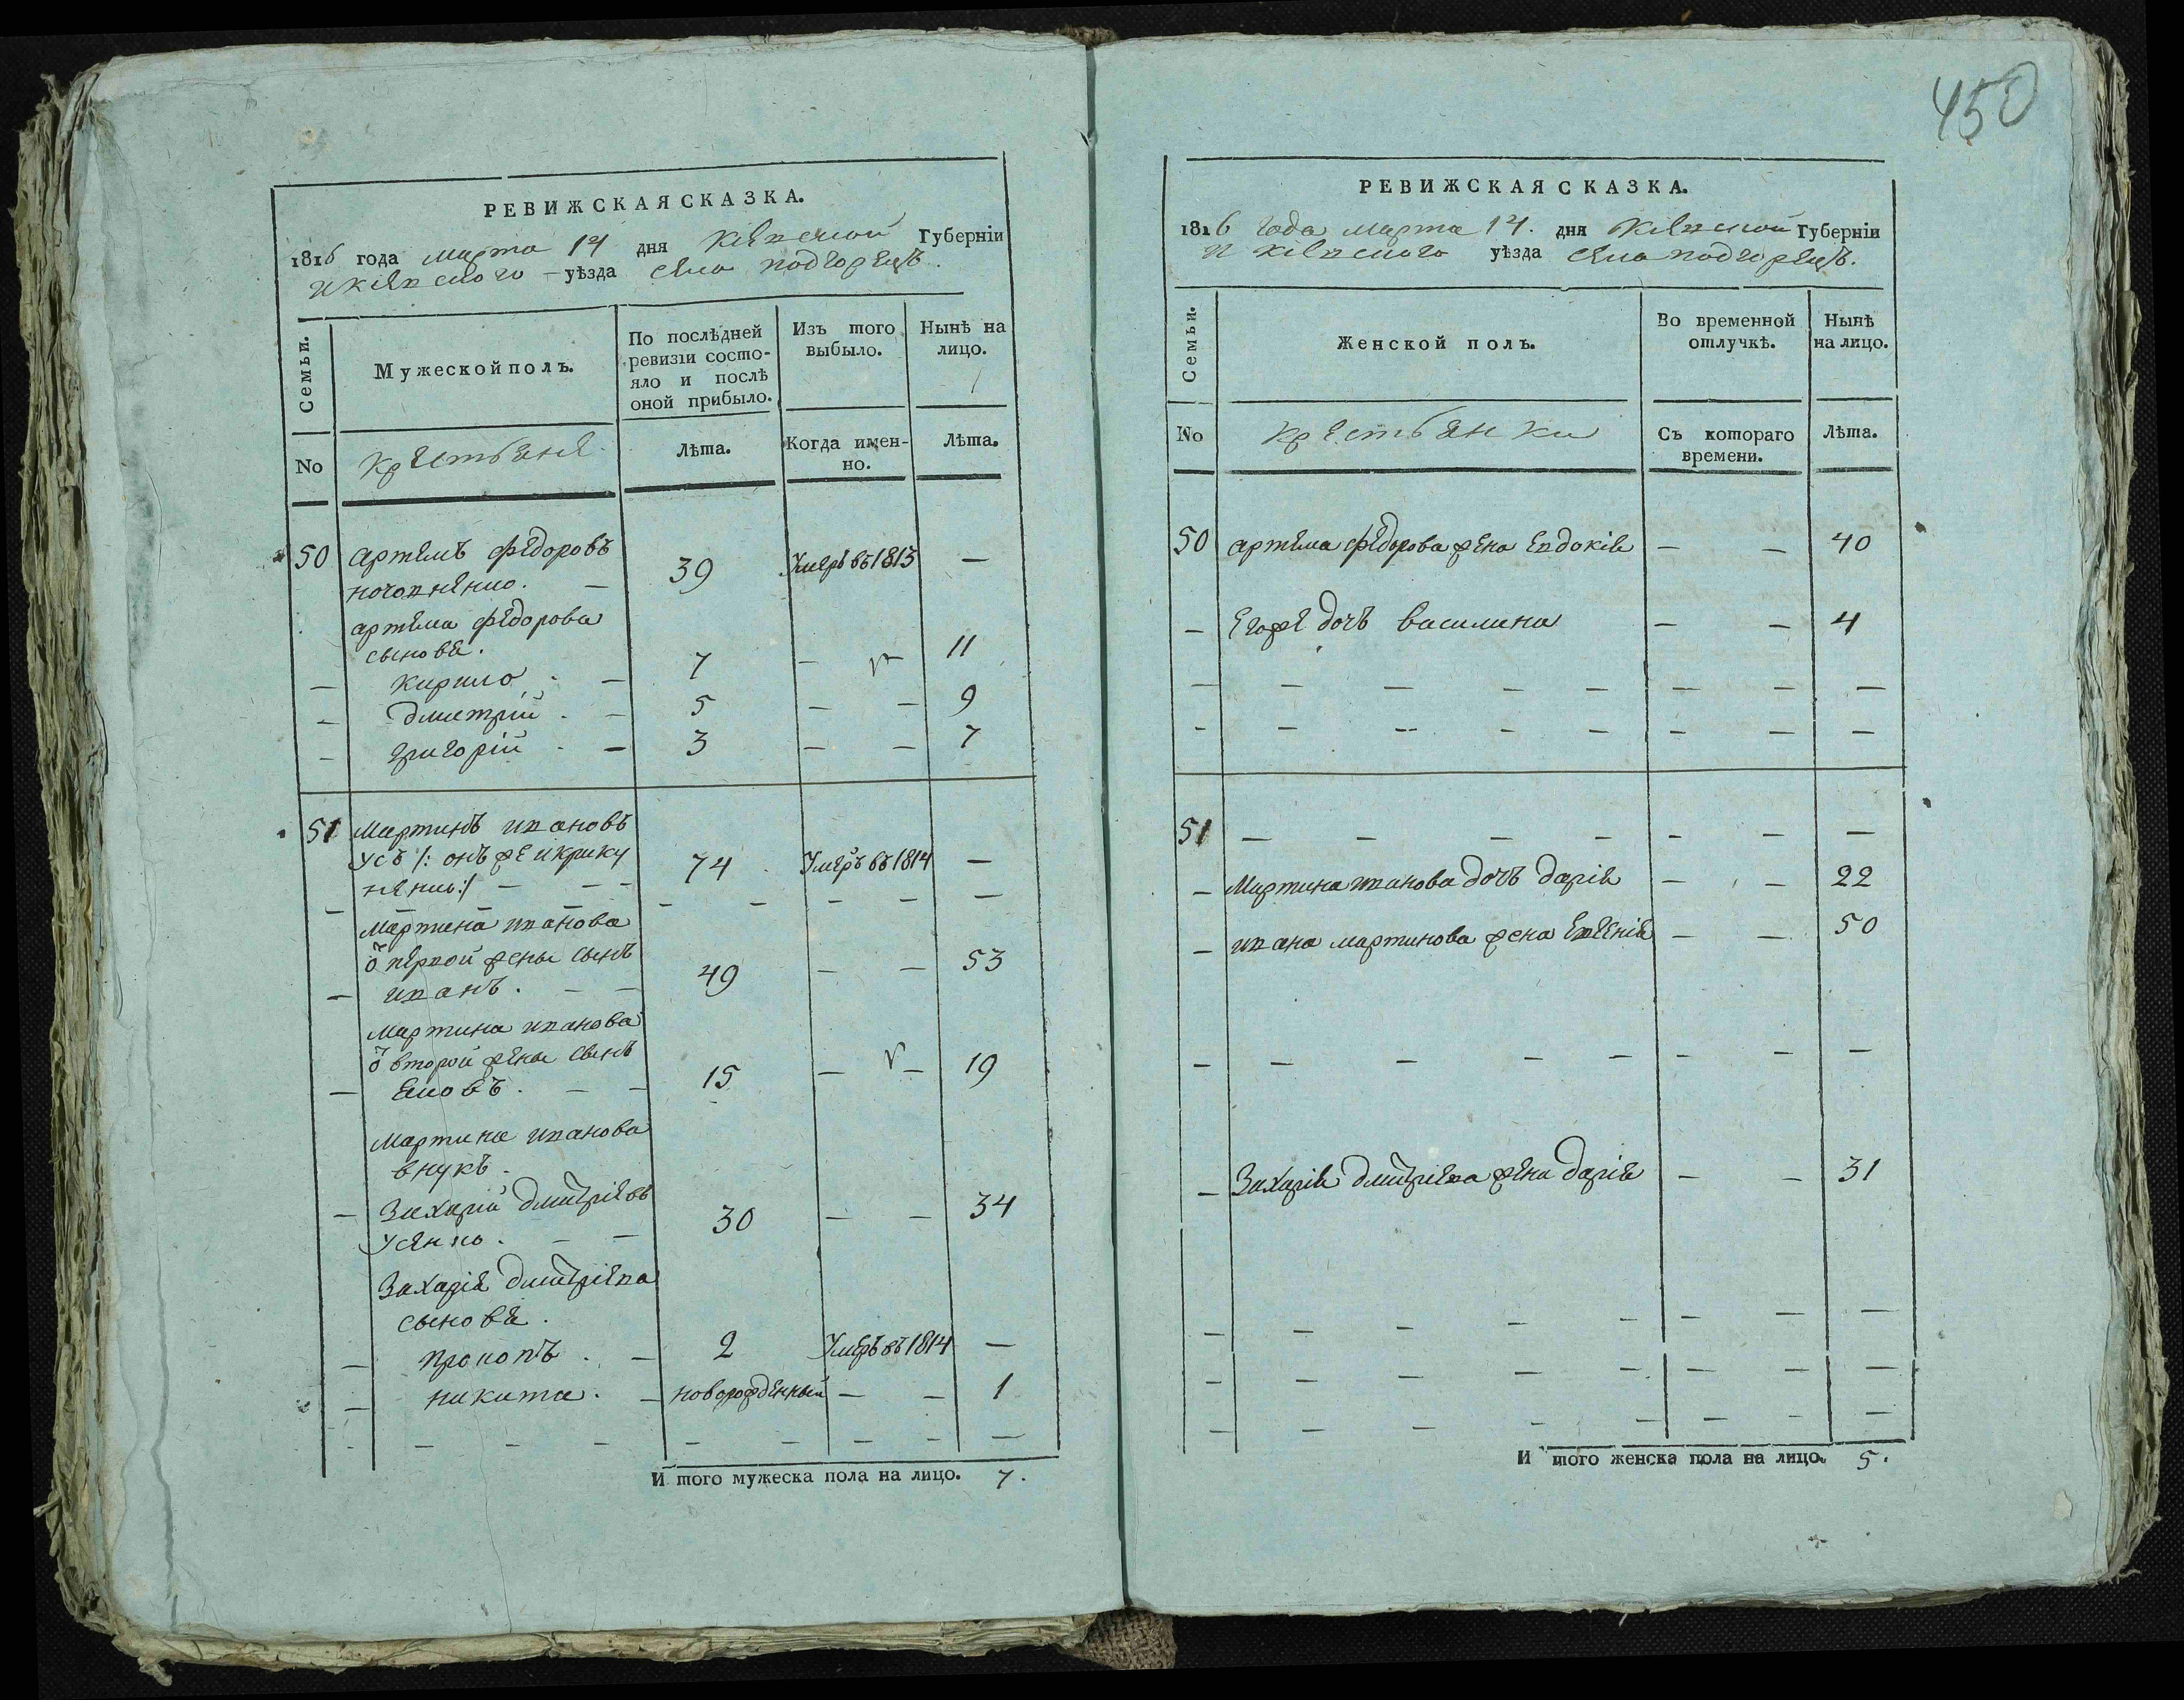 450
РЕВИЖСКАЯ СКАЗКА.
1816 года марта 14 дня Кіевской Губерніи
и Кіевского уѣзда села подгорецъ.
Семьи.
Мужеской полъ.
По послѣдней
ревизіи состо-
яло и послѣ
оной прибыло.
Изъ того
выбыло.
Нынѣ на
лицо.
No
крестьяне
Лѣта.
Когда имен-
но.
Лѣта.
50 артемъ федоровъ
39 Умеръ въ 1813 —
артема федорова
сыновя.
— кирило . — 7 — 11
— дмитрій . — 5 — — 9
— григорій . — 3 — — 7
51 Мартинъ ивановъ
усъ /: онъ же и крику
ненко :/ — 74 Умеръ въ 1814 —
Мартина иванова
ѿ первой жены сынъ
— иванъ . — — 49 — — 53
Мартина иванова
ѿ второй жены сынъ
— яковъ . — — 15 — — 19
Мартина иванова
внукъ .
— Захарій дмитріевъ
усенко . — — 30 — — 34
Захарія дмитріева
сыновя .
— прокопъ . — 2 Умеръ въ 1814 —
— никита . — новорожденный — — 1
И того мужеска пола на лицо. 7.
РЕВИЖСКАЯ СКАЗКА.
1816 года марта 14. дня Кіевской Губерніи
и кіевского уѣзда села подгорецъ.
Семьи.
Женской полъ.
Во временной
отлучкѣ.
Нынѣ
на лицо.
No
крестьянки
Съ котораго
времени.
Лѣта.
50 артема федорова жена евдокія — — 40
— Егоже дочъ василина — — 4
51 — — — — — — —
— Мартина иванова дочъ дарія — — 22
— ивана мартинова жена Евгенія — — 50
— Захарія дмитріева жена дарія — — 31
И того женска пола на лицо. 5.